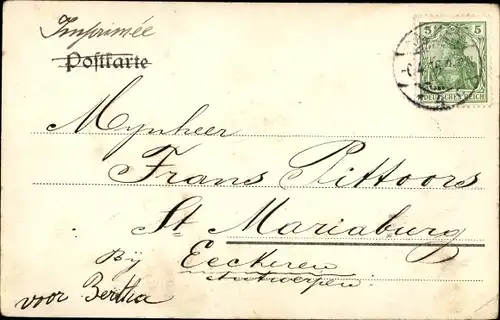 Imprimée
Postkarte
5 5
DEUTSCHES REICH
Mynheer
Frans Pittoors
St Mariaburg
By Eeckeren
Antwerpen.
voor Bertha